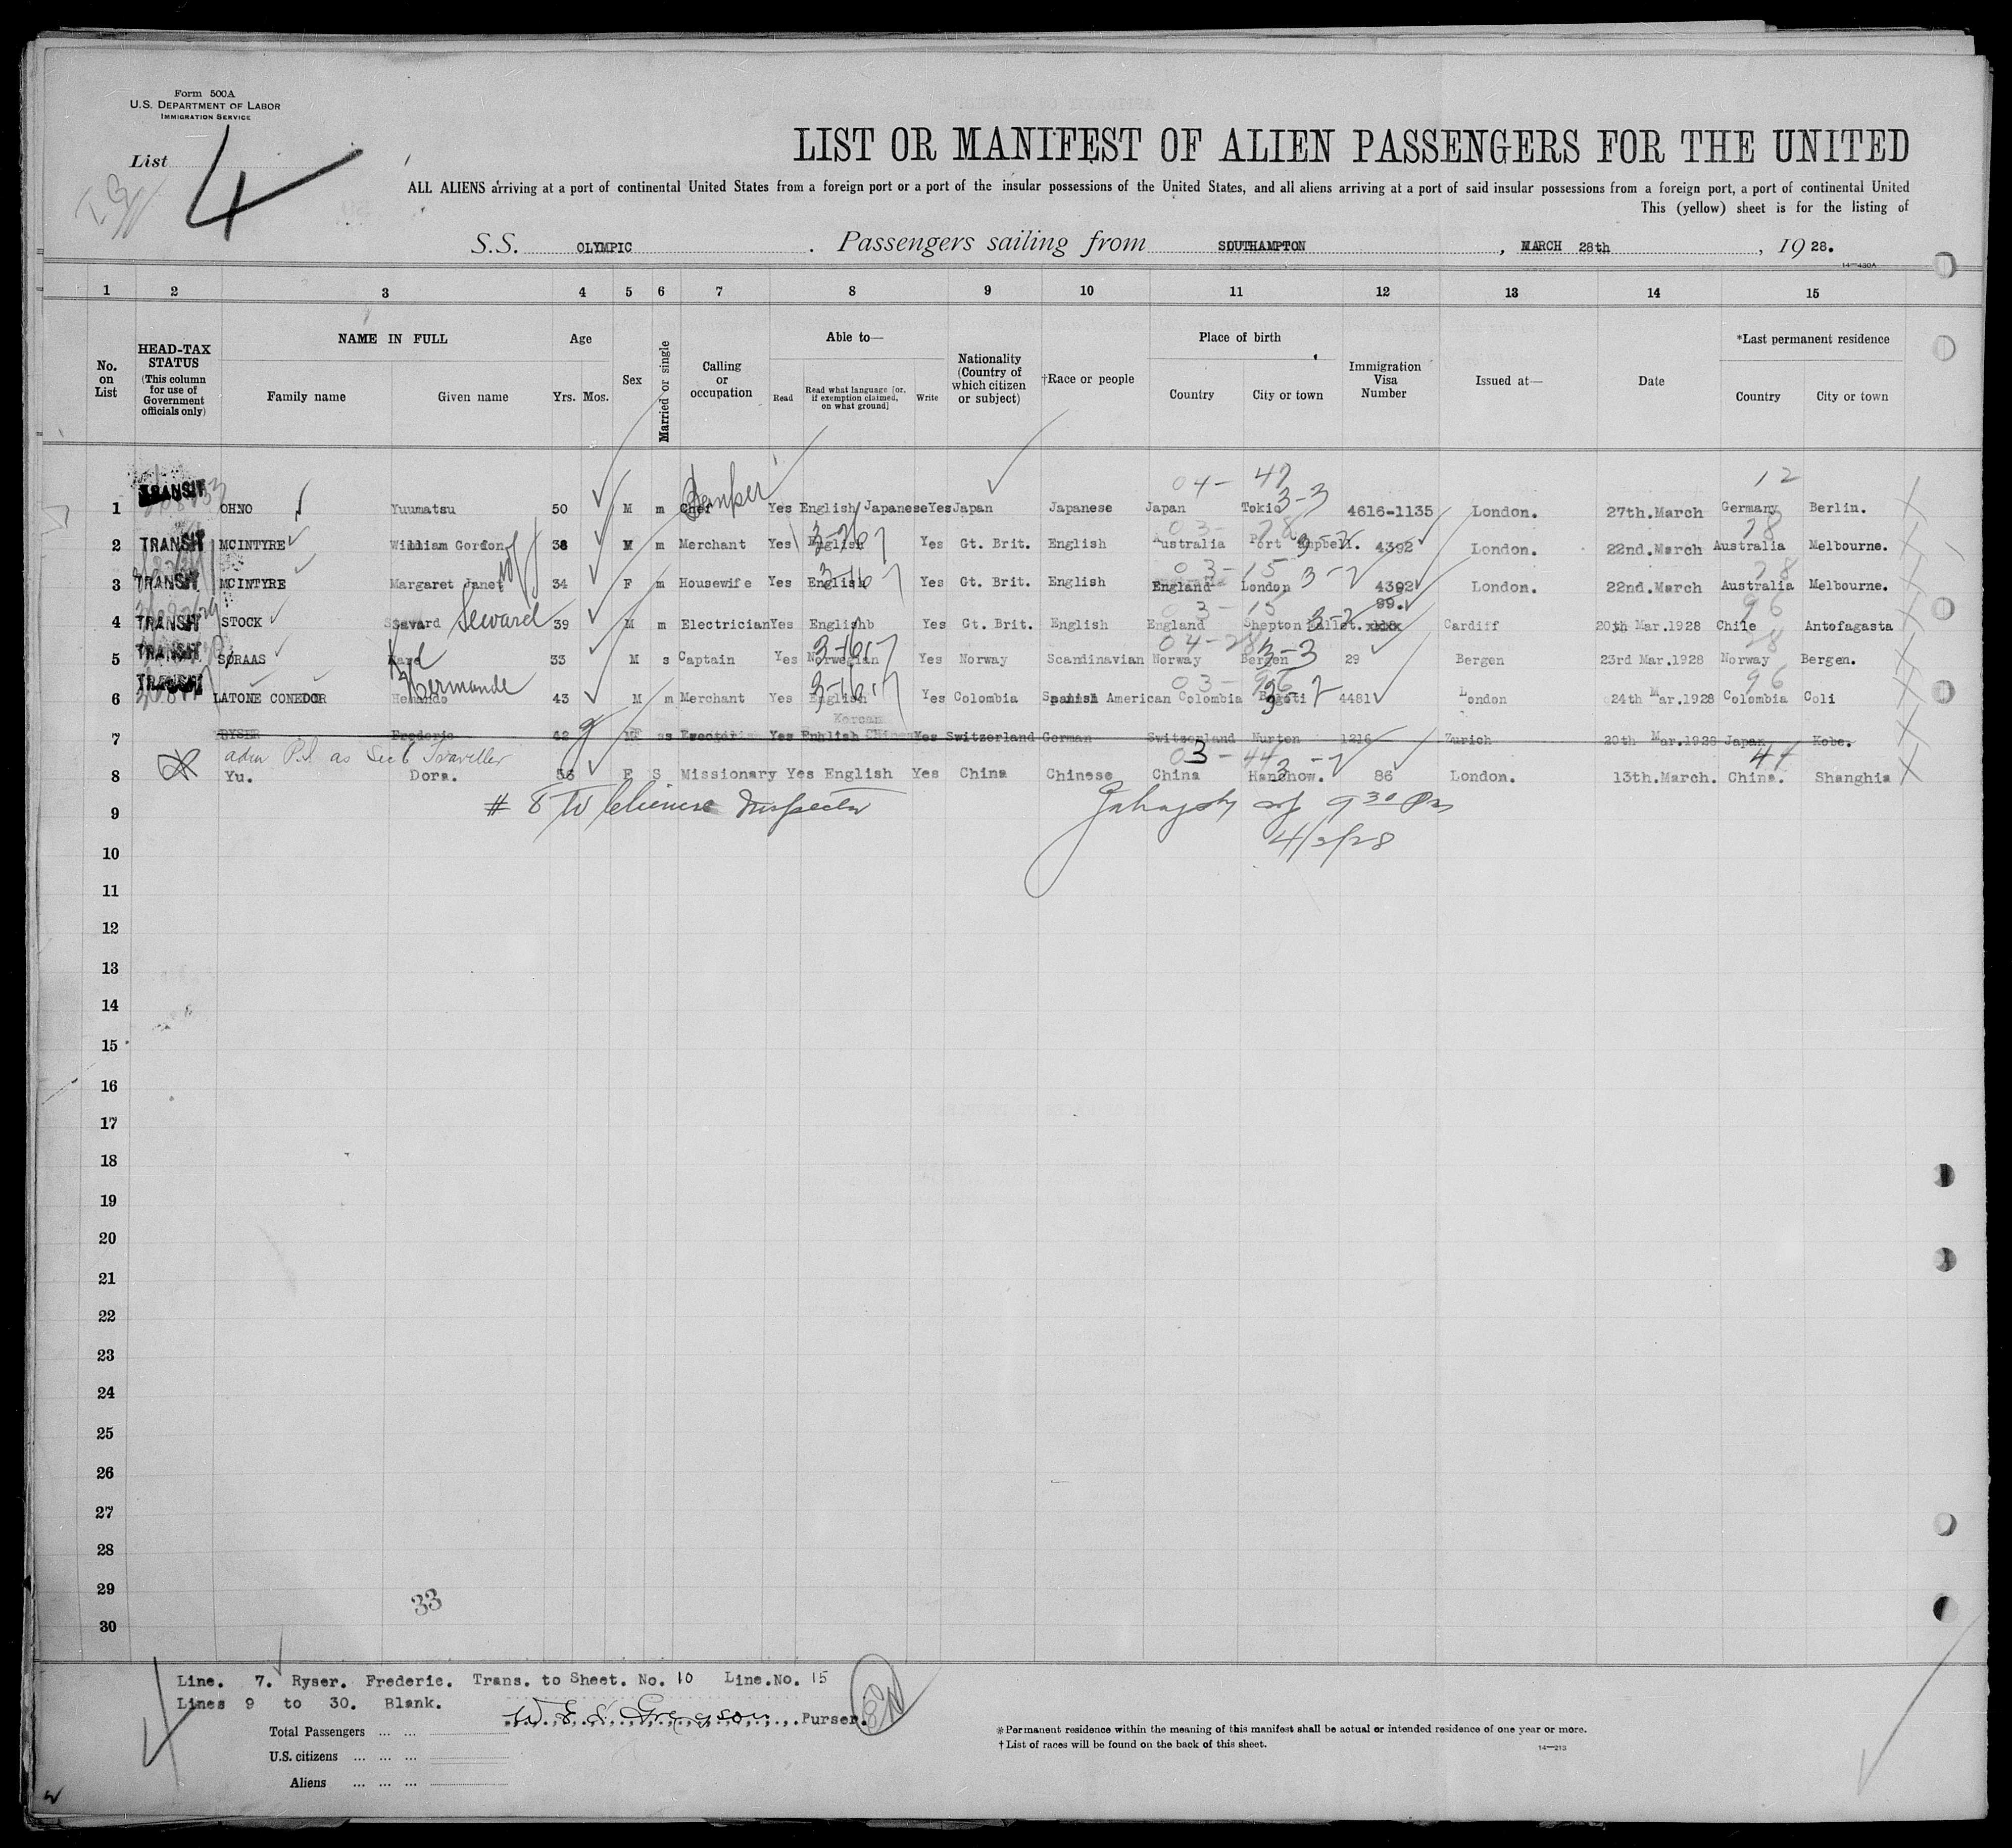 Form 500A
U.S. DEPARTMENT OF LABOR
IMMIGRATION SERVICE
List 4
LIST OR MANIFEST OF ALIEN PASSENGERS FOR THE UNITED
ALL ALIENS arriving at a port of continental United States from a foreign port or a port of the insular possessions of the United States, and all aliens arriving at a port of said insular possessions from a foreign port, a port of continental United
This (yellow) sheet is for the listing of
S.S. OLYMPIC. Passengers sailing from SOUTHAMPTON, MARCH 28th, 19 28.
14—430A
1 2 3 4 5 6 7 8 9 10 11 12 13 14 15
No. on List
HEAD-TAX STATUS (This column for use of Government officials only)
NAME IN FULL
Family name Given name
Age
Yrs. Mos.
Sex
Married or single
Calling or occupation
Able to—
Read
Read what language [or, if exemption claimed, on what ground]
Write
Nationality (Country of which citizen or subject)
†Race or people
Place of birth
Country City or town
Immigration Visa Number
Issued at—
Date
*Last permanent residence
Country City or town
04- 47 12
1 TRANSIT OHNO Yuumatsu 50 M m Chef Banker Yes English Japanese Yes Japan Japanese Japan Tokio 3-3 4616-1135 London. 27th.March Germany Berlin.
03- 78 78
2 TRANSIT MCINTYRE William Gordon 38 M m Merchant Yes English Yes Gt. Brit. English Australia Port Campbell. 3-2 4392 London. 22nd.March Australia Melbourne.
03-15 78
3 TRANSIT MCINTYRE Margaret Janet 34 F m Housewife Yes English Yes Gt. Brit. English England London 3-2 4392 London. 22nd.March Australia Melbourne.
03 15 99. 96
4 TRANSIT STOCK Savard Seward 39 M m Electrician Yes Englishb Yes Gt. Brit. English England Shepton Mallet. 3-2 Cardiff 20th Mar.1928 Chile Antofagasta
04-28 28
5 TRANSIT SØRAAS 33 M s Captain Yes Norwegian Yes Norway Scandinavian Norway Bergen 3-3 29 Bergen 23rd Mar.1928 Norway Bergen.
03-96 96
6 TRANSIT LATONE CONEDOR Hernando 43 M m Merchant Yes English Yes Colombia Spanish American Colombia Bogoti 3-2 4481 London 24th Mar.1928 Colombia Coli
Korean
7 RYSER Frederic 42 M s Yes English Chinese Yes Switzerland German Switzerland Murten 1216 Zurich 20th Mar.1928 Japan Kobe.
adm P.I. as Sec 6 Traveller 03-44 44
8 Yu. Dora. 56 F S Missionary Yes English Yes China Chinese China Hanchow. 3-2 86 London. 13th.March. China. Shanghia
# 8 to Chinese Inspector
9 30 Pm
9
4/3/28
10
11
12
13
14
15
16
17
18
19
20
21
22
23
24
25
26
27
28
29
33
30
Line. 7. Ryser. Frederic. Trans. to Sheet. No. 10 Line.No. 15
Lines 9 to 30. Blank.
Purser.
Total Passengers
U.S. citizens
Aliens
*Permanent residence within the meaning of this manifest shall be actual or intended residence of one year or more.
†List of races will be found on the back of this sheet.
14—213